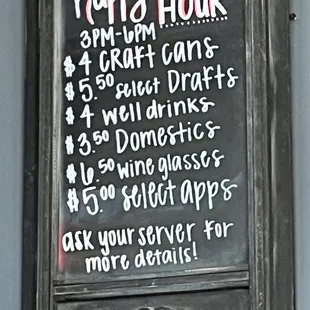 Happy HOUR
3PM-6PM
$4 CRAFT CANS
$5.50 select Drafts
$4 well drinks
$3.50 Domestics
$6.50 wine glasses
$5.00 select apps
ask your server for
more details!